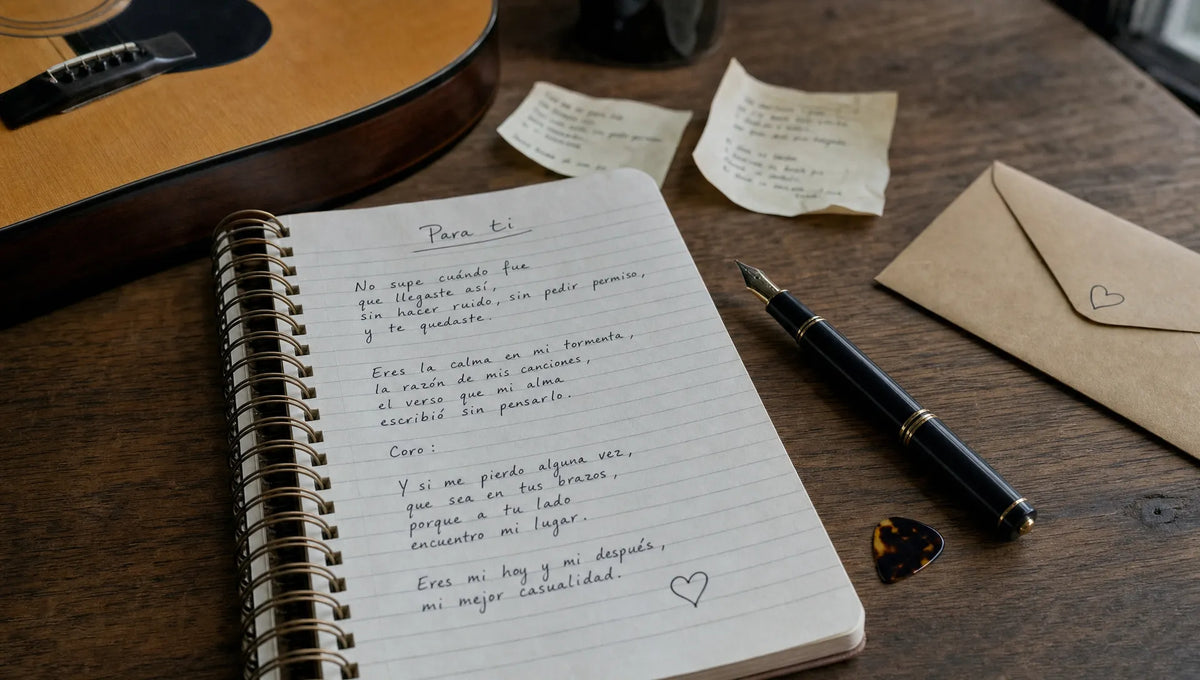 Para ti
No supe cuándo fue
que llegaste así,
sin hacer ruido, sin pedir permiso,
y te quedaste.
Eres la calma en mi tormenta,
la razón de mis canciones,
el verso que mi alma
escribió sin pensarlo.
Coro:
Y si me pierdo alguna vez,
que sea en tus brazos,
porque a tu lado
encuentro mi lugar.
Eres mi hoy y mi después,
mi mejor casualidad.